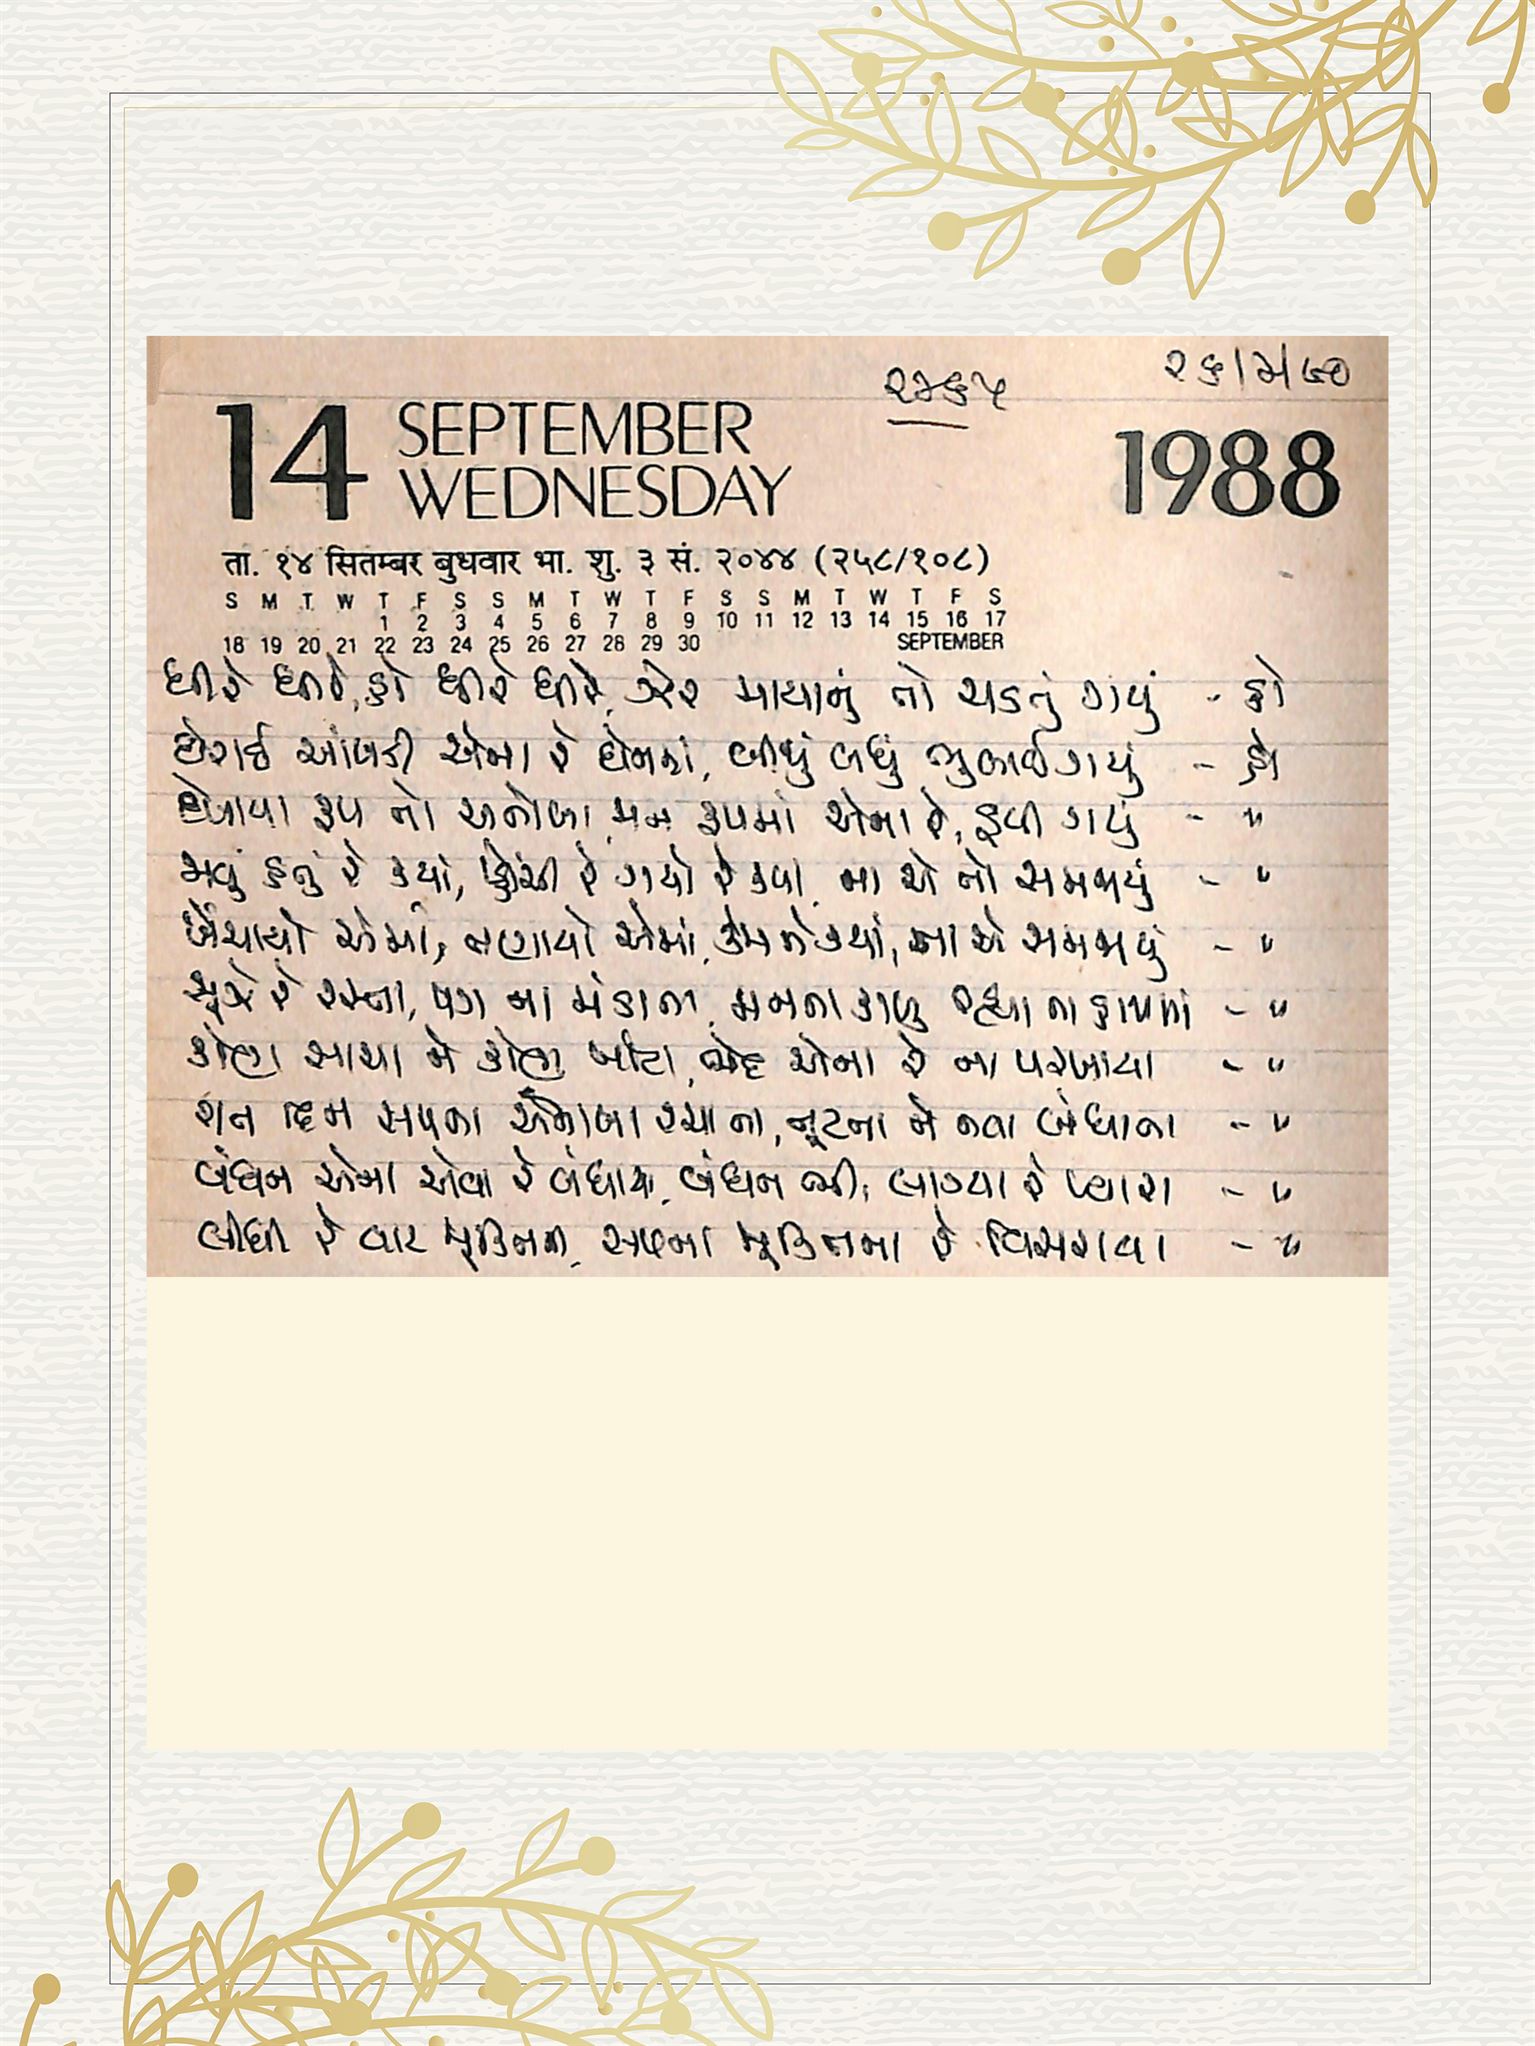 ૨૪૬૫
૨૬/૩/૯૦
14 SEPTEMBER WEDNESDAY 1988
ता. १४ सितम्बर बुधवार भा. शु. ३ सं. २०४४ (२५८/१०८)
S M T W T F S S M T W T F S S M T W T F S
1 2 3 4 5 6 7 8 9 10 11 12 13 14 15 16 17
18 19 20 21 22 23 24 25 26 27 28 29 30 SEPTEMBER
ધીરે ધીરે, હો ધીરે ધીરે, ઝેર માયાનું તો ચડતું ગયું - હો
ઘેરાઈ આંખડી એના રે ઘેનમાં, બીજું બધું ભુલાઈ ગયું - હો
દેખાયા રૂપ તો અનોખા, મન રૂપમાં એના રે, ડૂબી ગયું - "
જવું હતું રે ક્યાં, પ્હોંચી રે ગયો રે ક્યાં, ના એ તો સમજાયું - "
ખેંચાયો એમાં, તણાયો એમાં, કેમ ને ક્યાં, ના એ સમજાયું - "
સૂઝે રે રસ્તા, પગ ના મંડાતા, મનના કાબૂ રહ્યા ના હાથમાં - "
કોણ સાચા ને કોણ ખોટા, ભેદ એના રે ના પરખાયા - "
રાત દિન સપના અનોખા રચાતા, તૂટતા ને નવા બંધાતા - "
બંધન એના એવા રે બંધાયા, બંધન ભી લાગ્યા રે પ્યારા - "
લીધી રે વાટ મુક્તિની, સપના મુક્તિના રે વિસરાયા - "